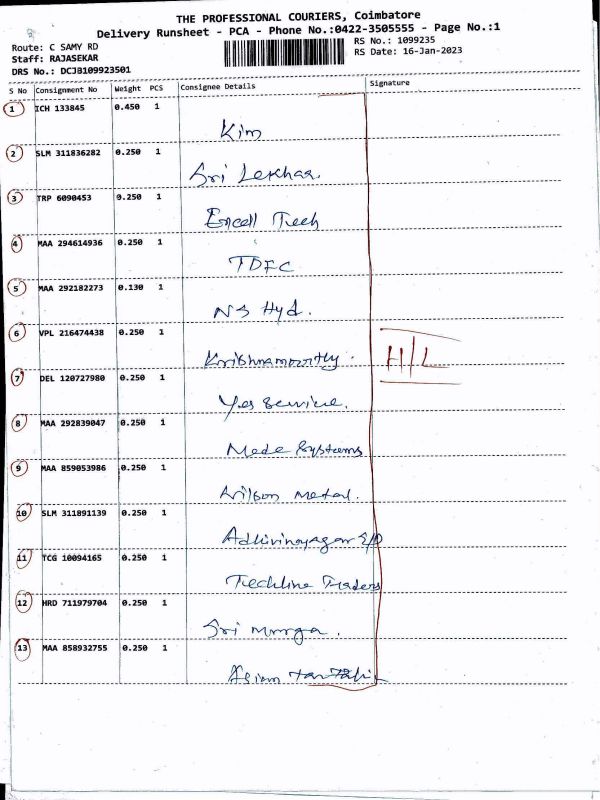 THE PROFESSIONAL COURIERS, Coimbatore
Delivery Runsheet - PCA - Phone No.:0422-3505555 - Page No.:1
Route: C SAMY RD
RS No.: 1099235
Staff: RAJASEKAR
RS Date: 16-Jan-2023
DRS No.: DCJB109923501
S No Consignment No Weight PCS Consignee Details Signature
1 ICH 133845 0.450 1
Kim
2 SLM 311836282 0.250 1
Sri Lekhaa.
3 TRP 6090453 0.250 1
Excell Tech
4 MAA 294614936 0.250 1
TDFC
5 MAA 292182273 0.130 1
NS Hyd.
6 VPL 216474438 0.250 1
Krishnamoorthy.
H/L
7 DEL 120727980 0.250 1
Yes Service.
8 MAA 292839047 0.250 1
Mede Systems
9 MAA 859053986 0.250 1
Wilson Metal.
10 SLM 311891139 0.250 1
Adhivinayagar
11 TCG 10094165 0.250 1
Techline Traders
12 HRD 711979704 0.250 1
Sri Murga.
13 MAA 858932755 0.250 1
Asian